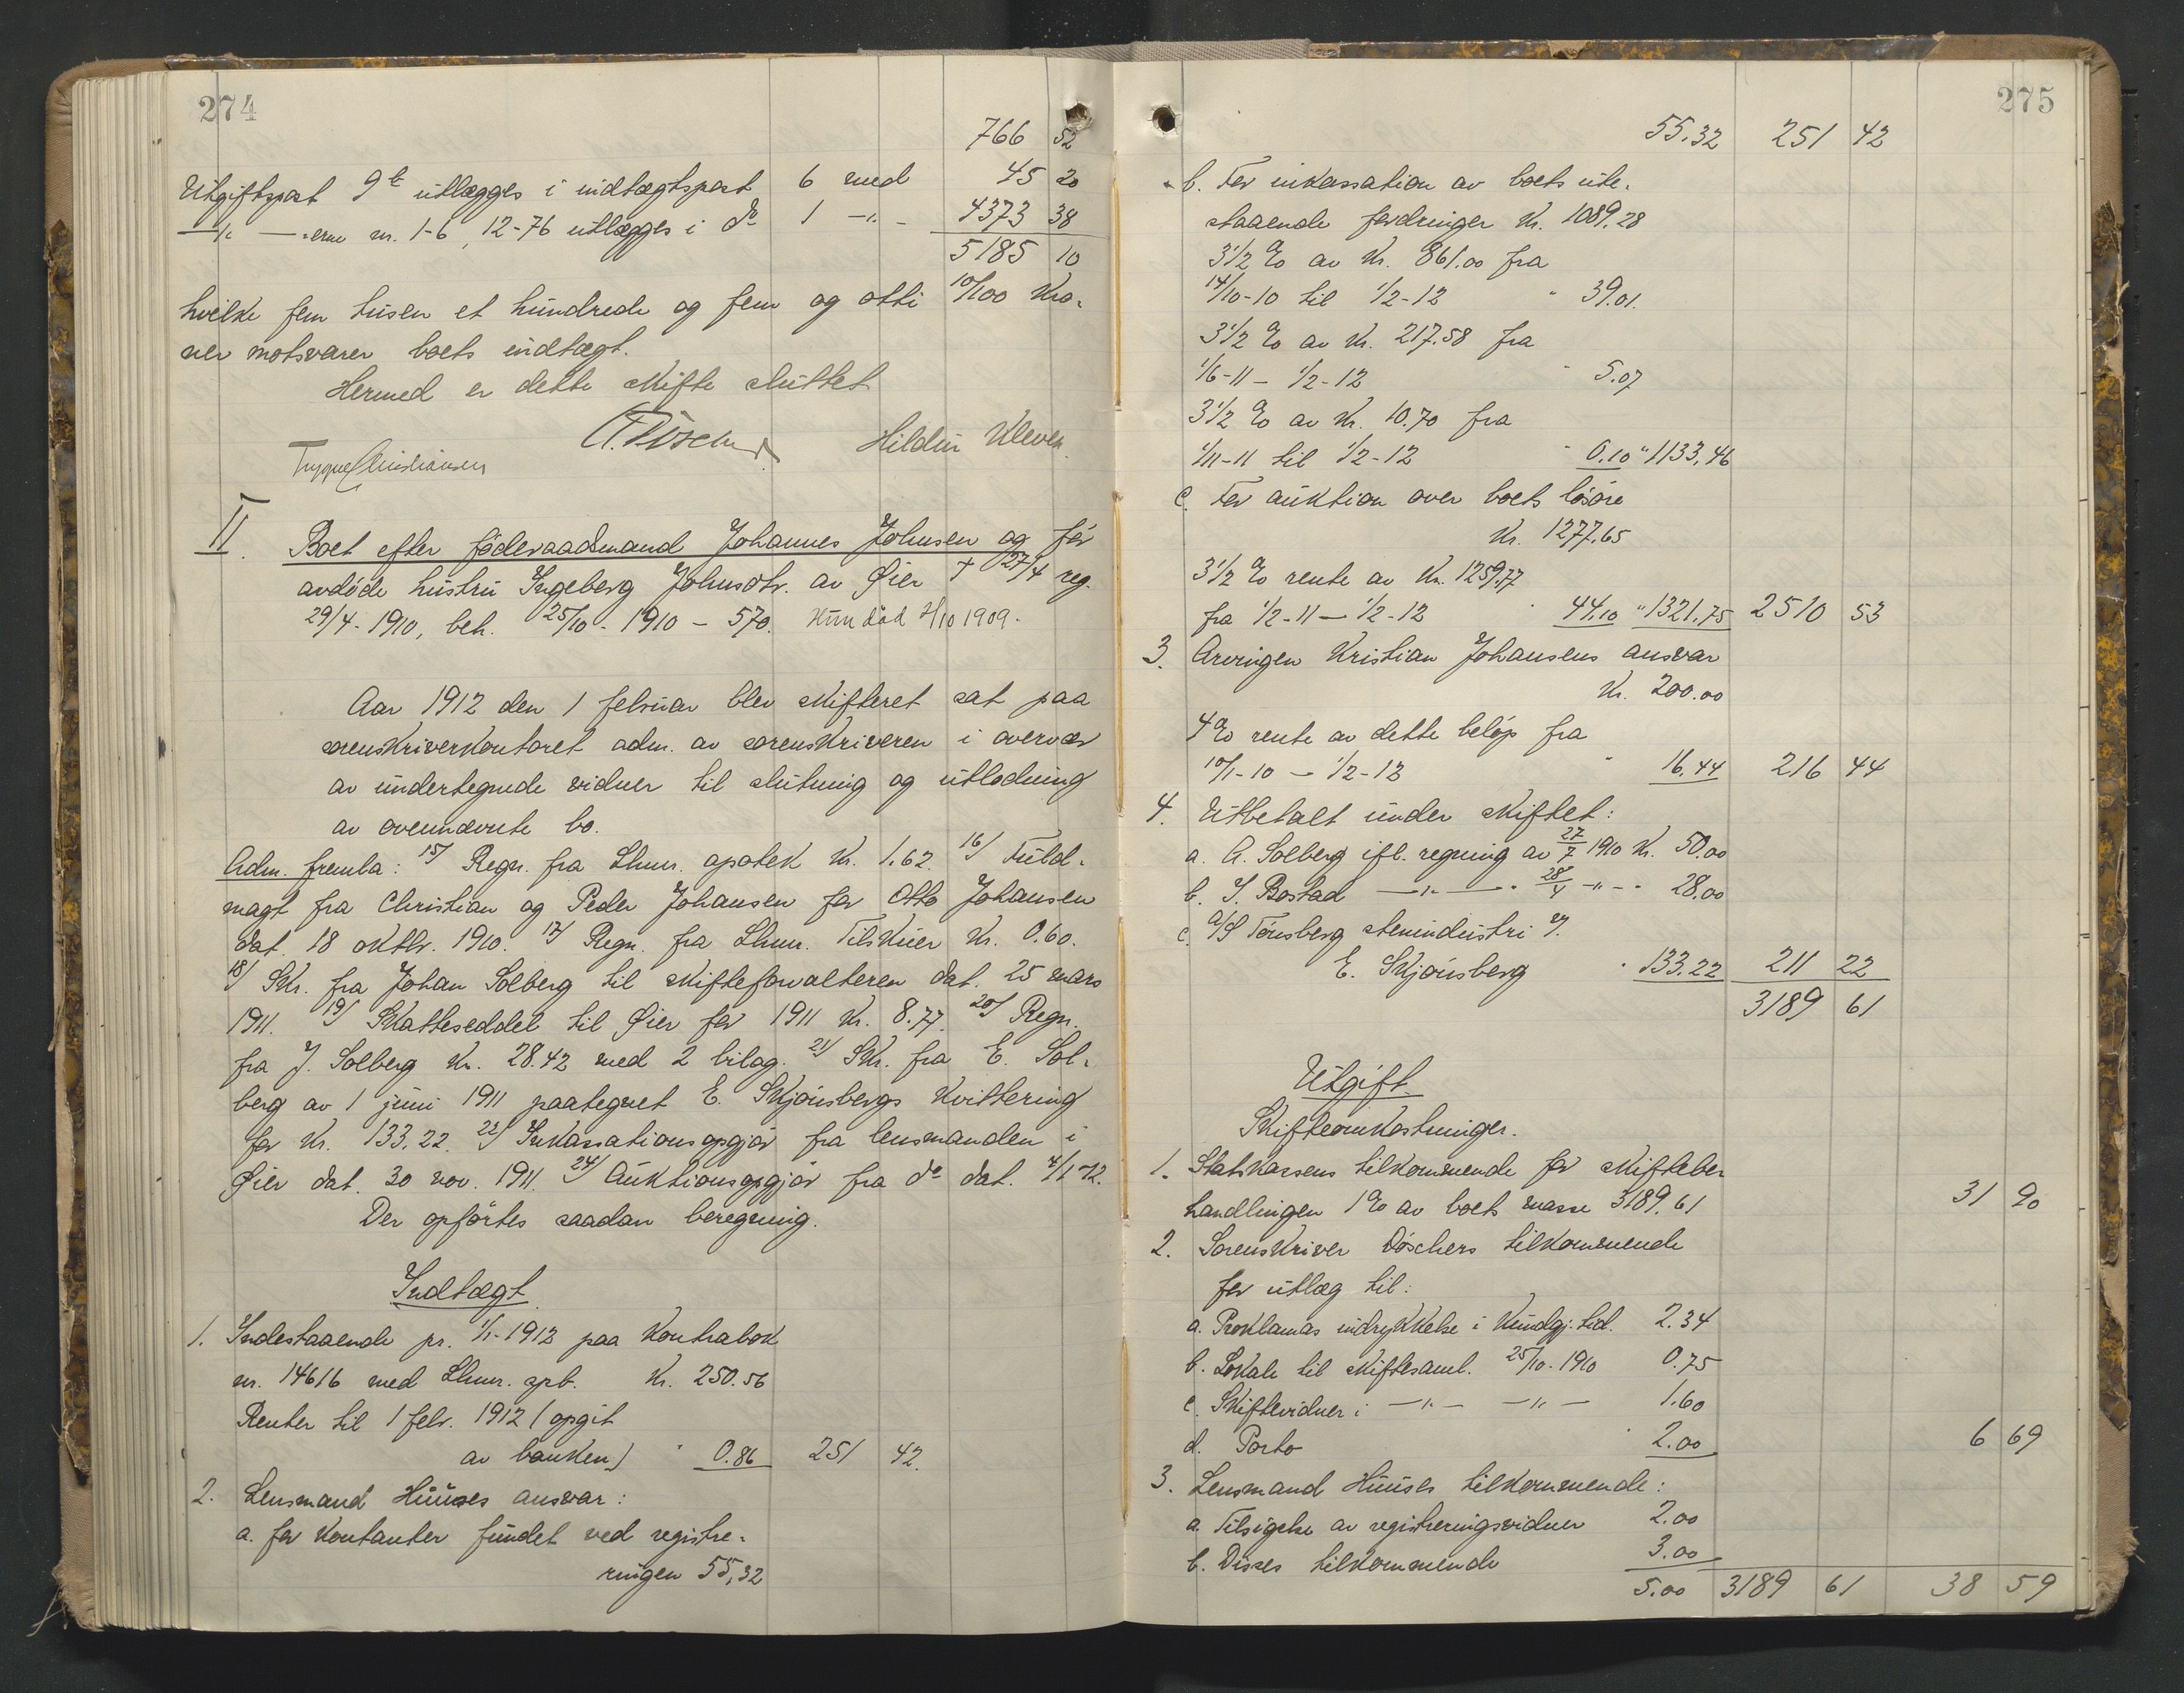 274
766 52
Utgiftspost 9b utlægges i indtægtspost 6 med 45 20
—"— -erne nr. 1-6, 12-76 utlægges i do 1 —"— 4373 38
5185 10
hvilke fem tusen et hundrede og fem og otti 10/100 Kro-
ner motsvarer boets indtægt.
Hermed er dette skifte sluttet
Hildur Kleven
Trygve Christiansen
II. Boet efter föderaadsmand Johannes Johnsen og før
avdøde hustru Ingeborg Johnsdtr. av Øier † 27/4 reg.
29/4-1910, beh. 25/10-1910 – 570. Hun död 4/10 1909.
Aar 1912 den 1 februar blev skifteret sat paa
sorenskriverkontoret adm. av sorenskriveren i overvær
av undertegnede vidner til slutning og utlodning
av ovennævnte bo.
Adm. fremla: 15/ Regn. fra Lhmr. apotek Kr. 1.62. 16/ Fuld-
magt fra Christian og Peder Johansen for Otto Johansen
dat. 18 oktbr. 1910. 17/ Regn. fra Lhmr. Tilskuer Kr. 0.60.
18/ Skr. fra Johan Solberg til skifteforvalteren dat. 25 mars
1911. 19/ Skatteseddel til Øier for 1911 Kr. 8.77. 20/ Regn.
fra J. Solberg Kr. 28.42 med 2 bilag. 21/ Skr. fra E. Sol-
berg av 1 juni 1911 paategnet E. Skjønsbergs kvittering
for Kr. 133.22. 22/ Inkassationsopgjør fra lensmanden i
Øier dat. 30 nov. 1911. 24/ Auktionsopgjør fra do dat. 4/1-12.
Der opførtes saadan beregning.
Indtægt
1. Indestaaende pr. 1/1-1912 paa Kontrabok
nr. 14616 med Lhmr. spb. Kr. 250.56
Renter til 1 febr. 1912 (opgit
av banken) " 0.86 251 42.
2. Lensmand Huuses ansvar:
a. for Kontanter fundet ved registre-
ringen 55,32
275
55.32 251 42
b. For inkassation av boets ute-
staaende fordringer Kr. 1089.28
3 1/2 % av Kr. 861.00 fra
14/10-10 til 1/2-12 " 39.01.
3 1/2 % av Kr. 217.58 fra
1/6-11 – 1/2-12 " 5.07
3 1/2 % av Kr. 10.70 fra
1/11-11 til 1/2-12 " 0.10 " 1133.46
c. For auktion over boets løsøre
Kr. 1277.65
3 1/2 % rente av Kr. 1259.77
fra 1/2-11 – 1/2-12 " 44.10 " 1321.75 2510 53
3. Arvingen Kristian Johansens ansvar
Kr. 200.00
4 % rente av dette beløp fra
10/1-10 – 1/2-12 " 16.44 216 44
4. Utbetalt under skiftet:
a. A. Solberg ifl. regning av 27/7 1910 Kr. 50.00
b. J. Bostad —"— " 28/4 —"— " 28.00
c. A/S Tønsberg stenindustri v.
E. Skjønsberg " 133.22 211 22
3189 61
Utgift.
Skifteomkostninger.
1. Statskassens tilkommende for skiftebe-
handlingen 1 % av boets masse 3189.61 31 90
2. Sorenskriver Döschers tilkommende
for utlæg til:
a. Proklamas indrykkelse i Kundgj. tid. 2.34
b. Lokale til skiftesaml. 25/10-1910 0.75
c. Skiftevidner i —"— —"— 1.60
d. Porto " 2.00 6 69
3. Lensmand Huuses tilkommende:
a. Tilsigelse av registreringsvidner 2.00
b. Disses tilkommende 3.00
5.00 3189 61 38 59